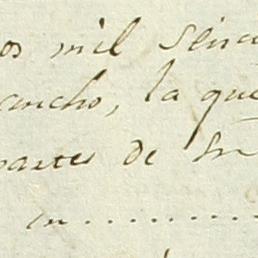 os mil
ancho, la que
partes de
en..........